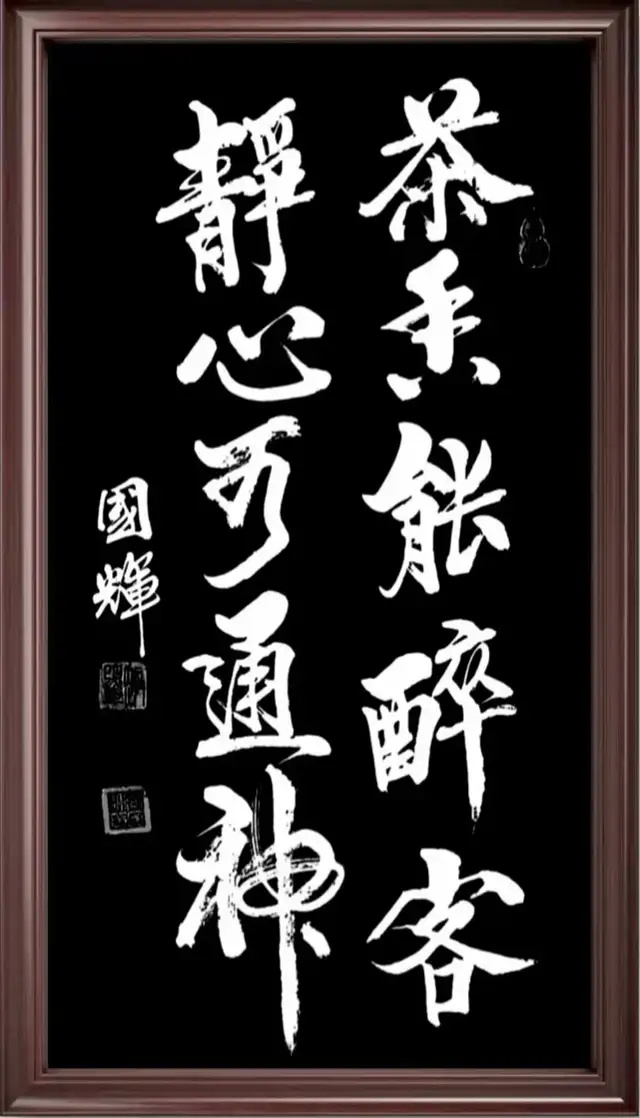 茶香能醉客
靜心可通神
國輝